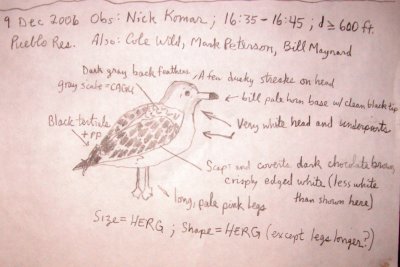 9 Dec 2006 Obs: Nick Komar; 16:35-16:45; d ≥ 600 ft.
Pueblo Res. Also: Cole Wild, Mark Peterson, Bill Maynard
Dark gray back feathers
gray scale = CAGU
A few dusky streaks on head
bill pale horn base w/ clean black tip
Very white head and underparts
Black tertials
+ pp
Scaps and coverts dark chocolate brown,
crisply edged white (less white
than shown here)
long, pale pink legs
Size = HERG ; Shape = HERG (except legs longer?)